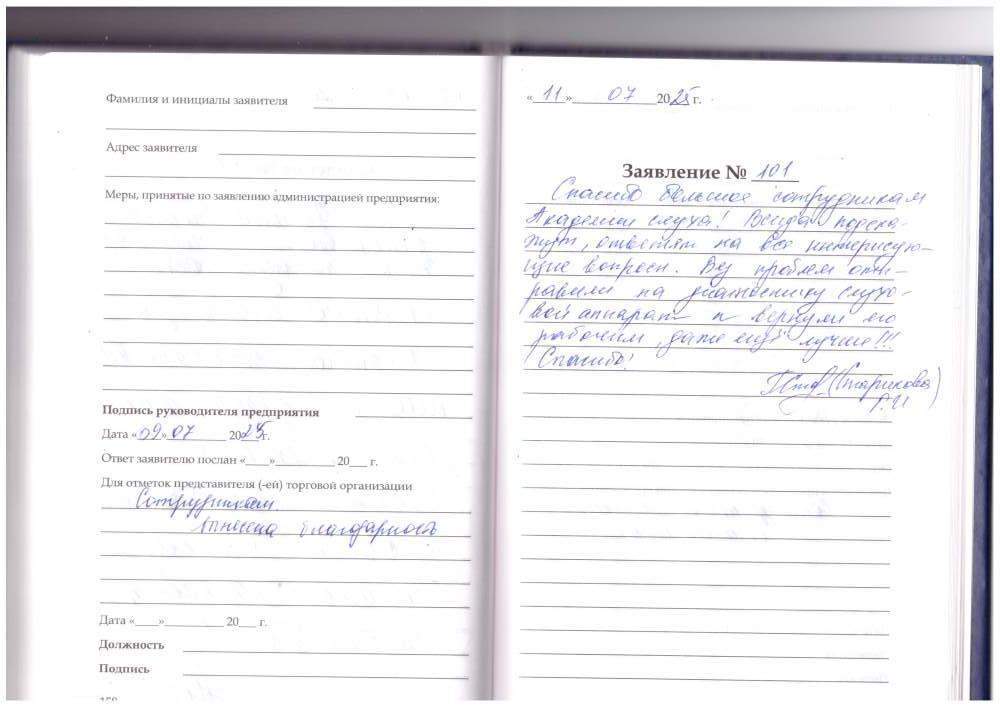 Фамилия и инициалы заявителя
Адрес заявителя
Меры, принятые по заявлению администрацией предприятия:
Подпись руководителя предприятия
Дата «09» 07 2025 г.
Ответ заявителю послан «____»__________ 20___ г.
Для отметок представителя (-ей) торговой организации
Сотрудникам
вынесена благодарность
Дата «____»__________ 20___ г.
Должность
Подпись
«11» 07 2025 г.
Заявление № 101
Спасибо большое сотрудникам
Академии слуха! Всегда подска-
жут, ответят на все интерисую-
щие вопросы. Без проблем отп-
равили на диагностику слухо-
вой аппарат и вернули его
рабочим, даже ещё лучше!!!
Спасибо!
(Старикова
Г.И)